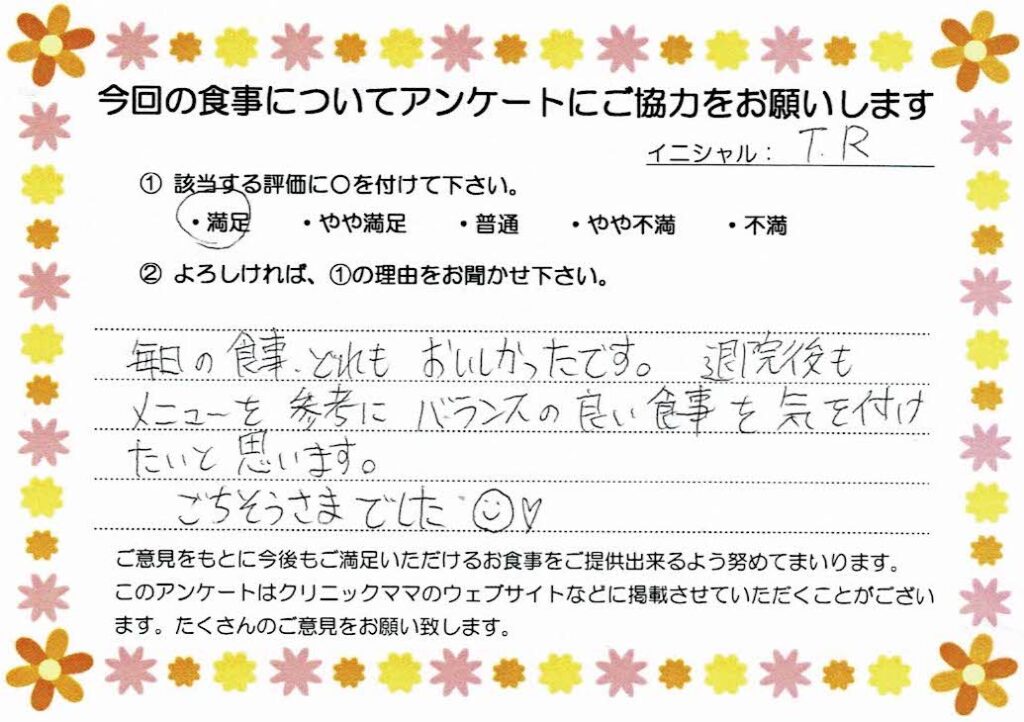 今回の食事についてアンケートにご協力をお願いします
イニシャル： T.R
① 該当する評価に〇を付けて下さい。
・満足 ・やや満足 ・普通 ・やや不満 ・不満
② よろしければ、①の理由をお聞かせ下さい。
毎日の食事、どれもおいしかったです。 退院後も
メニューを参考にバランスの良い食事を気を付け
たいと思います。
ごちそうさまでした
ご意見をもとに今後もご満足いただけるお食事をご提供出来るよう努めてまいります。
このアンケートはクリニックママのウェブサイトなどに掲載させていただくことがござい
ます。たくさんのご意見をお願い致します。